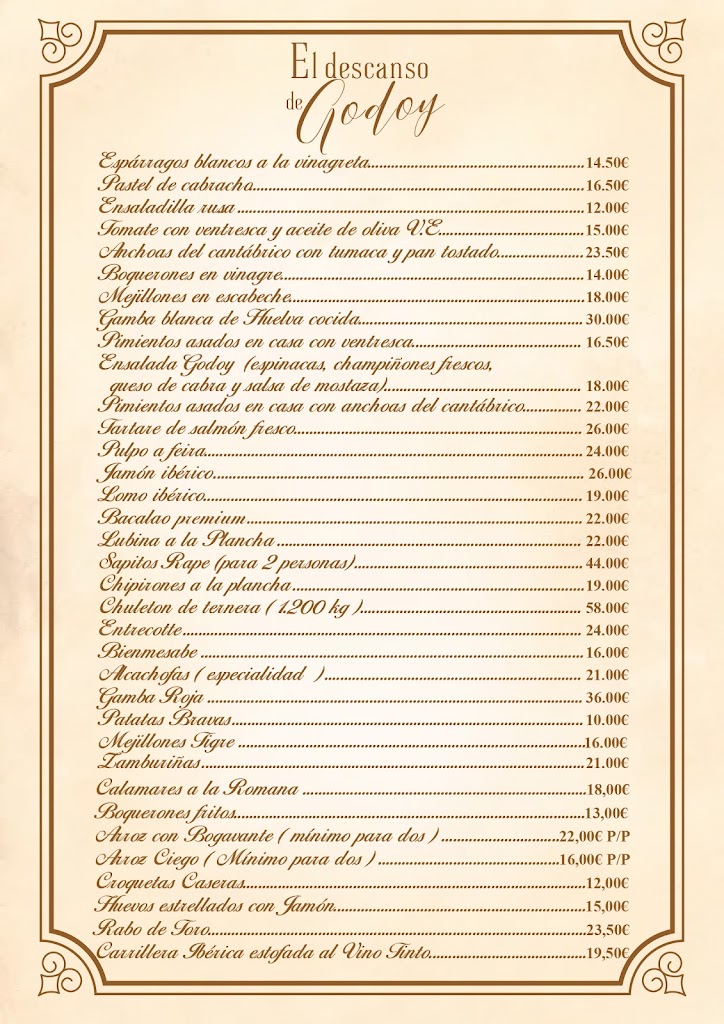 El descanso
de Godoy
Espárragos blancos a la vinagreta 14.50€
Pastel de cabracho 16.50€
Ensaladilla rusa 12.00€
Tomate con ventresca y aceite de oliva V.E 15.00€
Anchoas del cantábrico con tumaca y pan tostado 23.50€
Boquerones en vinagre 14.00€
Mejillones en escabeche 18.00€
Gamba blanca de Huelva cocida 30.00€
Pimientos asados en casa con ventresca 16.50€
Ensalada Godoy (espinacas, champiñones frescos,
queso de cabra y salsa de mostaza) 18.00€
Pimientos asados en casa con anchoas del cantábrico 22.00€
Tartare de salmón fresco 26.00€
Pulpo a feira 24.00€
Jamón ibérico 26.00€
Lomo ibérico 19.00€
Bacalao premium 22.00€
Lubina a la Plancha 22.00€
Sapitos Rape (para 2 personas) 44.00€
Chipirones a la plancha 19.00€
Chuleton de ternera ( 1.200 kg ) 58.00€
Entrecotte 24.00€
Bienmesabe 16.00€
Alcachofas ( especialidad ) 21.00€
Gamba Roja 36.00€
Patatas Bravas 10.00€
Mejillones Tigre 16.00€
Zamburiñas 21.00€
Calamares a la Romana 18,00€
Boquerones fritos 13,00€
Arroz con Bogavante ( mínimo para dos ) 22,00€ P/P
Arroz Ciego ( Mínimo para dos ) 16,00€ P/P
Croquetas Caseras 12,00€
Huevos estrellados con Jamón 15,00€
Rabo de Toro 23,50€
Carrillera Ibérica estofada al Vino Tinto 19,50€